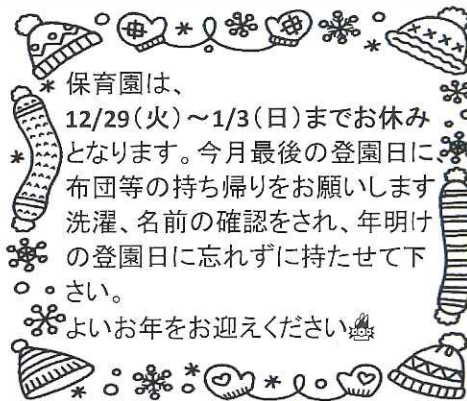 保育園は、
12/29(火)～1/3(日)までお休み
となります。今月最後の登園日に、
布団等の持ち帰りをお願いします
洗濯、名前の確認をされ、年明け
の登園日に忘れずに持たせて下
さい。
よいお年をお迎えください